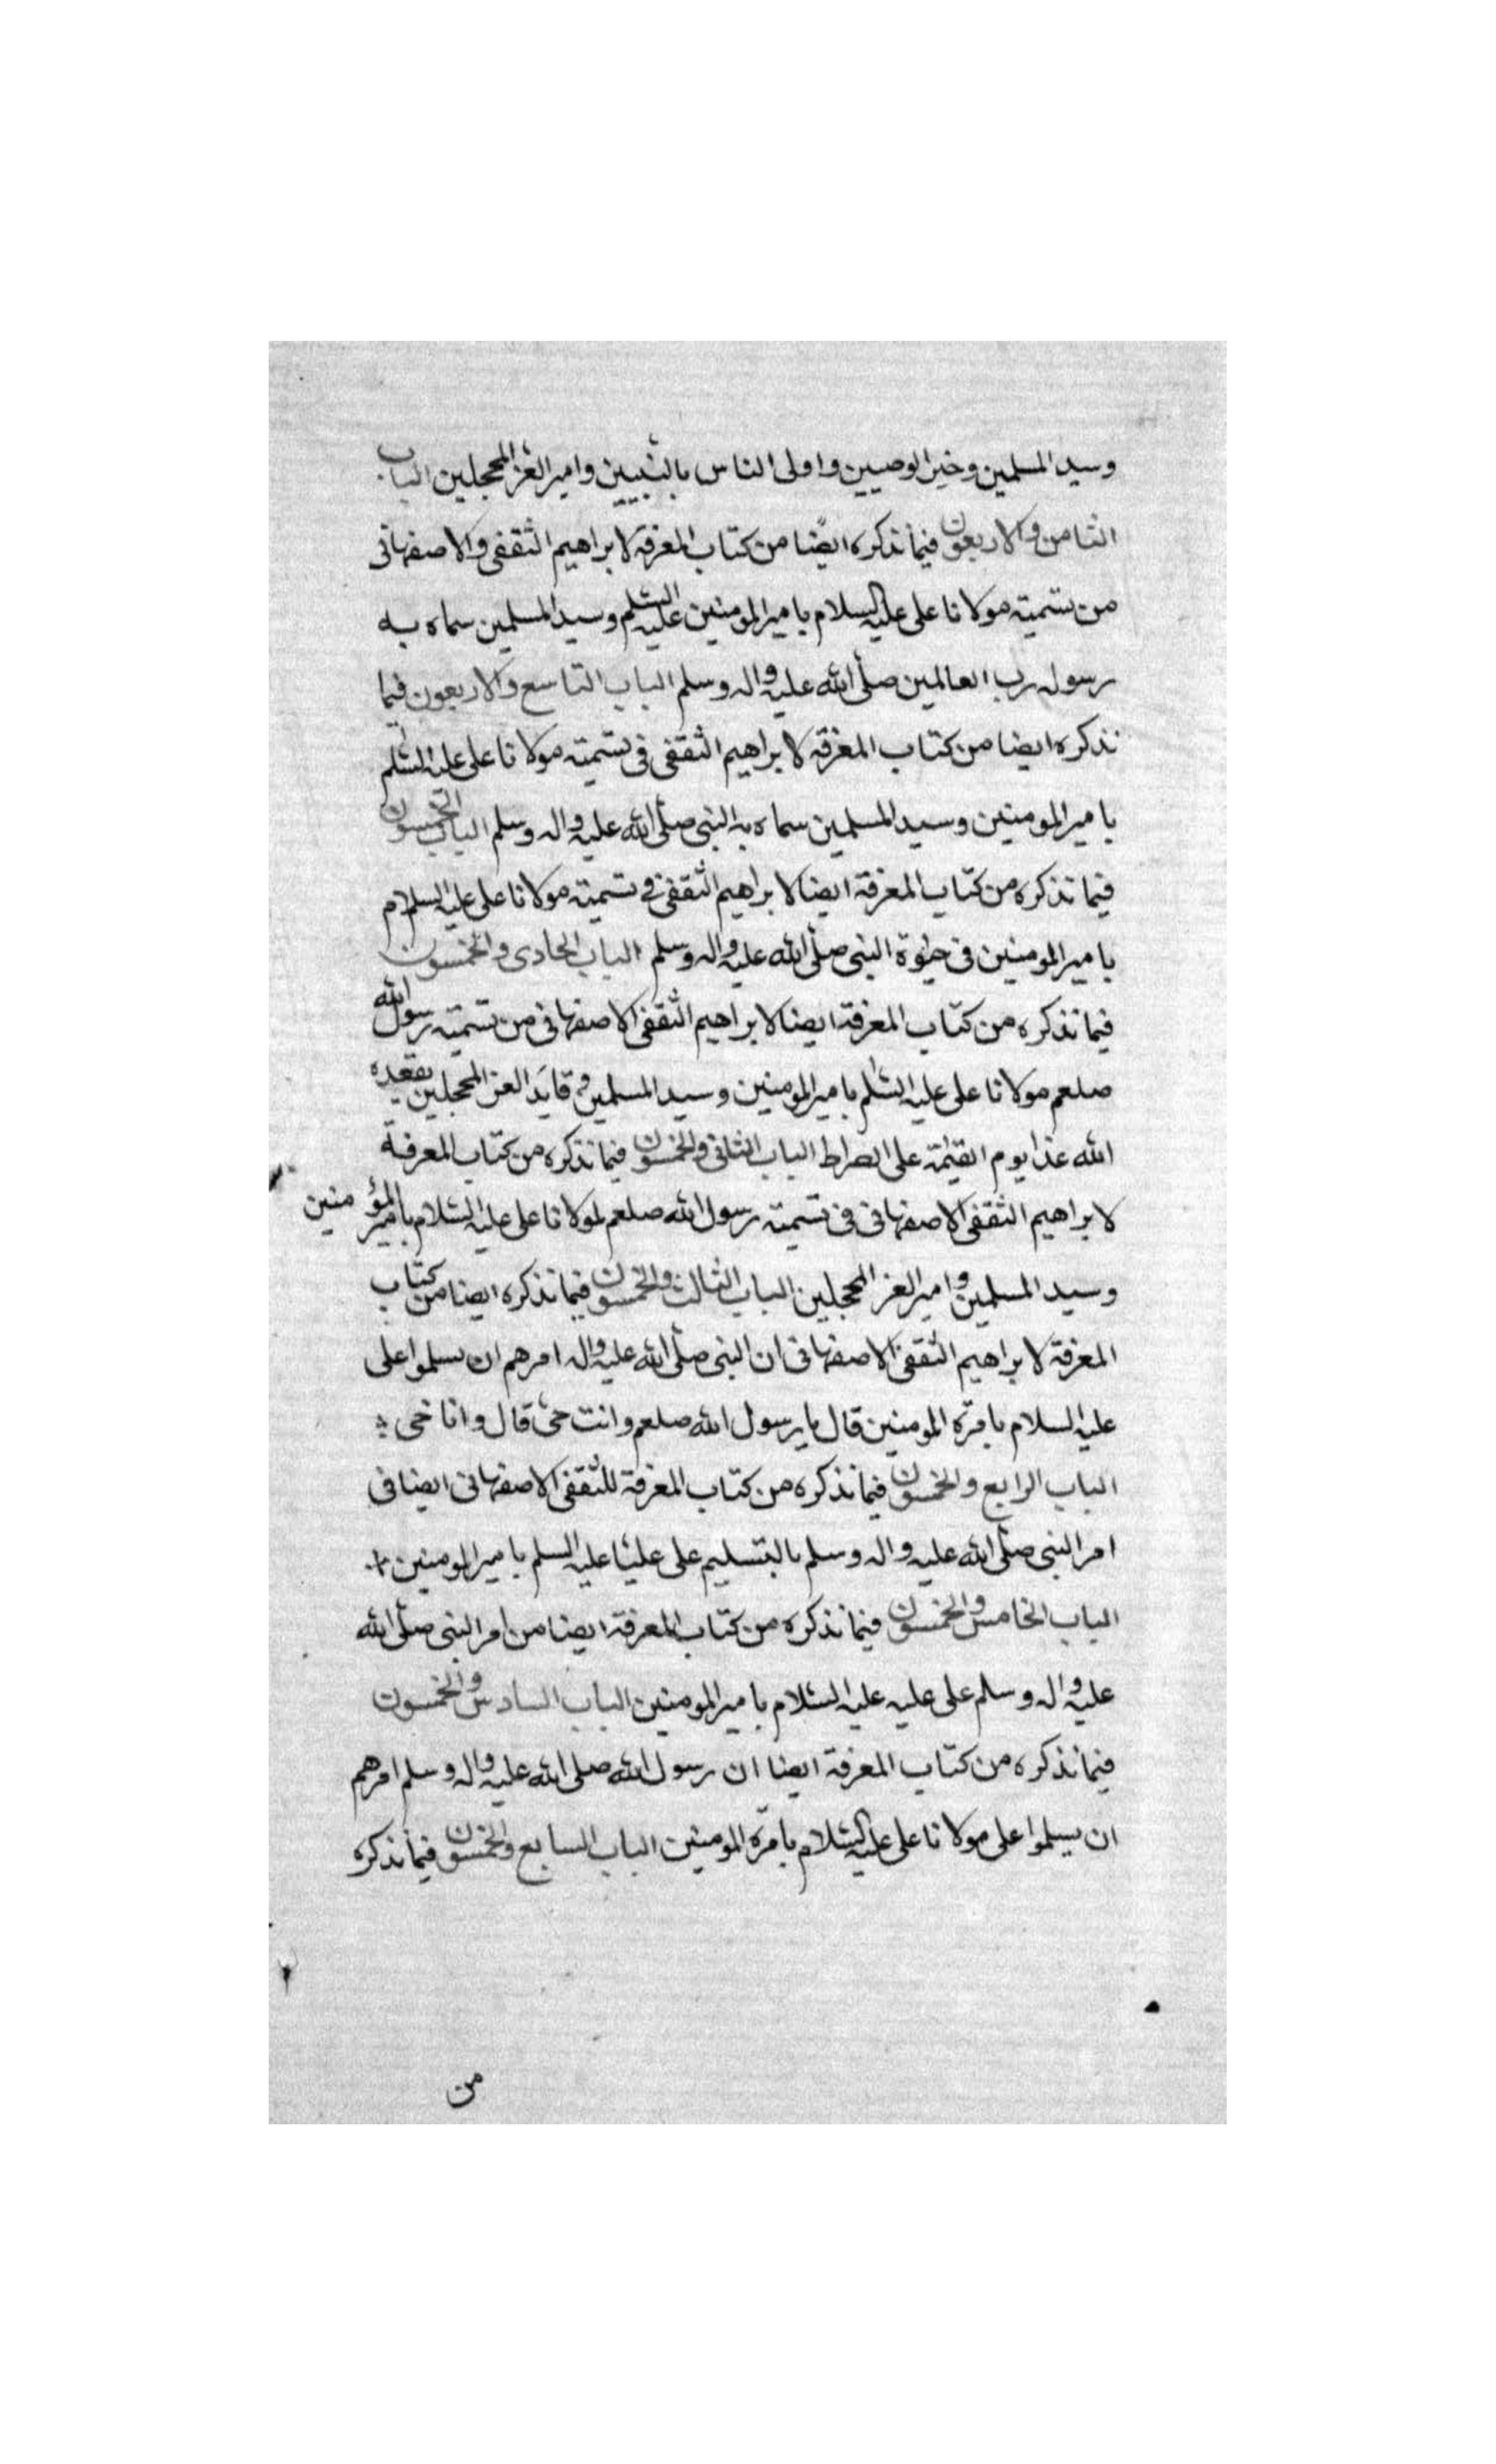 وسيد المسلمين وخير الوصيين واولى الناس بالنبيين وامير الغر المحجلين الباب
الثامن والاربعون فيما نذكره ايضا من كتاب المعرفة لابراهيم الثقفى والاصفهانى
من تسميته مولانا على عليه السلام بامير المومنين عليه السلم وسيد المسلمين سماه به
رسول رب العالمين صلى الله عليه واله وسلم الباب التاسع والاربعون فيما
نذكره ايضا من كتاب المعرفة لابراهيم الثقفى فى تسميته مولانا على عليه السلم
بامير المومنين وسيد المسلمين سماه به النبى صلى الله عليه واله وسلم الباب الخمسون
فيما نذكره من كتاب المعرفة ايضا لابراهيم الثقفى فى تسميته مولانا على عليه السلام
بامير المومنين فى حيوة النبى صلى الله عليه واله وسلم الباب الحادى والخمسون
فيما نذكره من كتاب المعرفة ايضا لابراهيم الثقفى الاصفهانى من تسميته رسول الله
صلعم مولانا على عليه السلم بامير المومنين وسيد المسلمين وقايد الغر المحجلين يقعده
الله غدا يوم القيمة على الصراط الباب الثانى والخمسون فيما نذكره من كتاب المعرفة
لابراهيم الثقفى الاصفهانى فى تسميته رسول الله صلعم لمولانا على عليه السلام بامير المؤمنين
وسيد المسلمين وامير الغر المحجلين الباب الثالث والخمسون فيما نذكره ايضا من كتاب
المعرفة لابراهيم الثقفى الاصفهانى ان النبى صلى الله عليه واله امرهم ان يسلموا على
عليه السلام بامرة المومنين قال يا رسول الله صلعم وانت حى قال وانا حى
الباب الرابع والخمسون فيما نذكره من كتاب المعرفة للثقفى الاصفهانى ايضا فى
امر النبى صلى الله عليه واله وسلم بالتسليم على عليا عليه السلم بامير المومنين
الباب الخامس والخمسون فيما نذكره من كتاب المعرفة ايضا من امر النبى صلى الله
عليه واله وسلم على عليه عليه السلام بامير المومنين الباب السادس والخمسون
فيما نذكره من كتاب المعرفة ايضا ان رسول الله صلى الله عليه واله وسلم امرهم
ان يسلموا على مولانا على عليه السلام بامرة المومنين الباب السابع والخمسون فيما نذكره
من